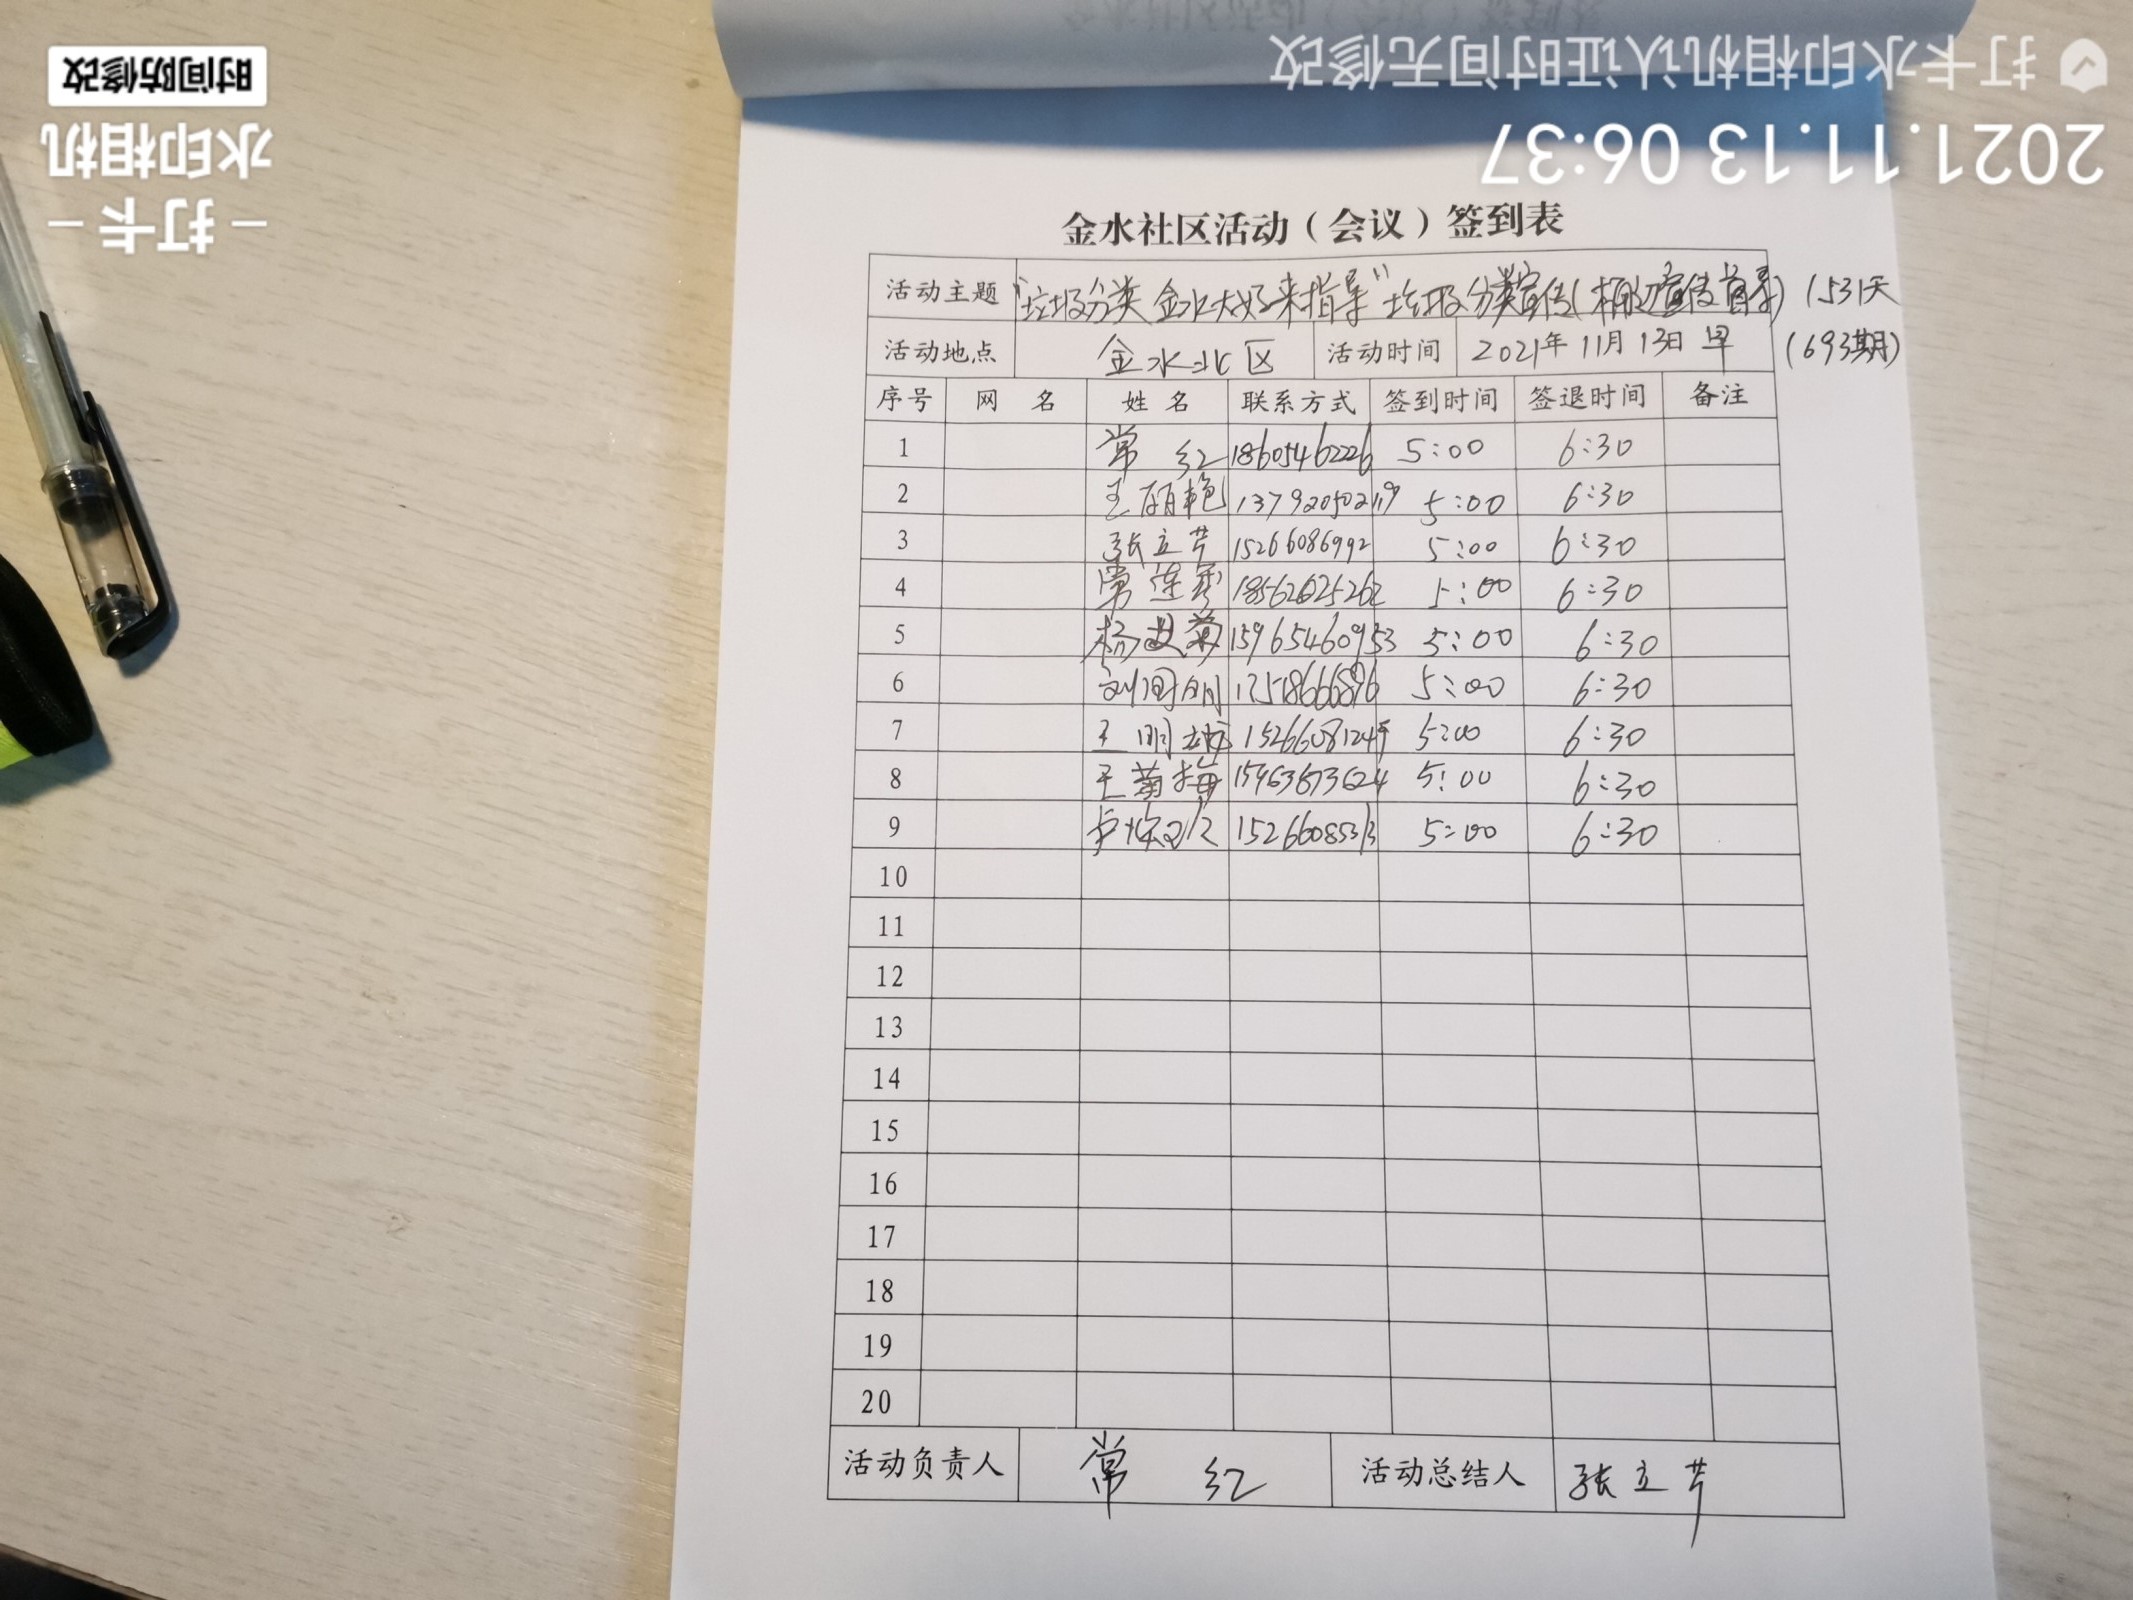 打卡水印相机认证时间无修改
2021.11.13 06:37
时间防修改
水印相机
- 打卡 -
金水社区活动（会议）签到表
活动主题 "垃圾分类 金水大姐来指导" 垃圾分类宣传(桶边宣传督导) 1531天
活动地点 金水北区 活动时间 2021年11月13日 早 (693期)
序号 网 名 姓 名 联系方式 签到时间 签退时间 备注
1 常 红 18605462226 5:00 6:30
2 王丽艳 13792050219 5:00 6:30
3 张立芹 15266086992 5:00 6:30
4 常莲 18562625262 5:00 6:30
5 杨 15965460953 5:00 6:30
6 刘 5:00 6:30
7 王明 5:00 6:30
8 王菊梅 5:00 6:30
9 15266085313 5:00 6:30
10
11
12
13
14
15
16
17
18
19
20
活动负责人 常 红 活动总结人 张立芹